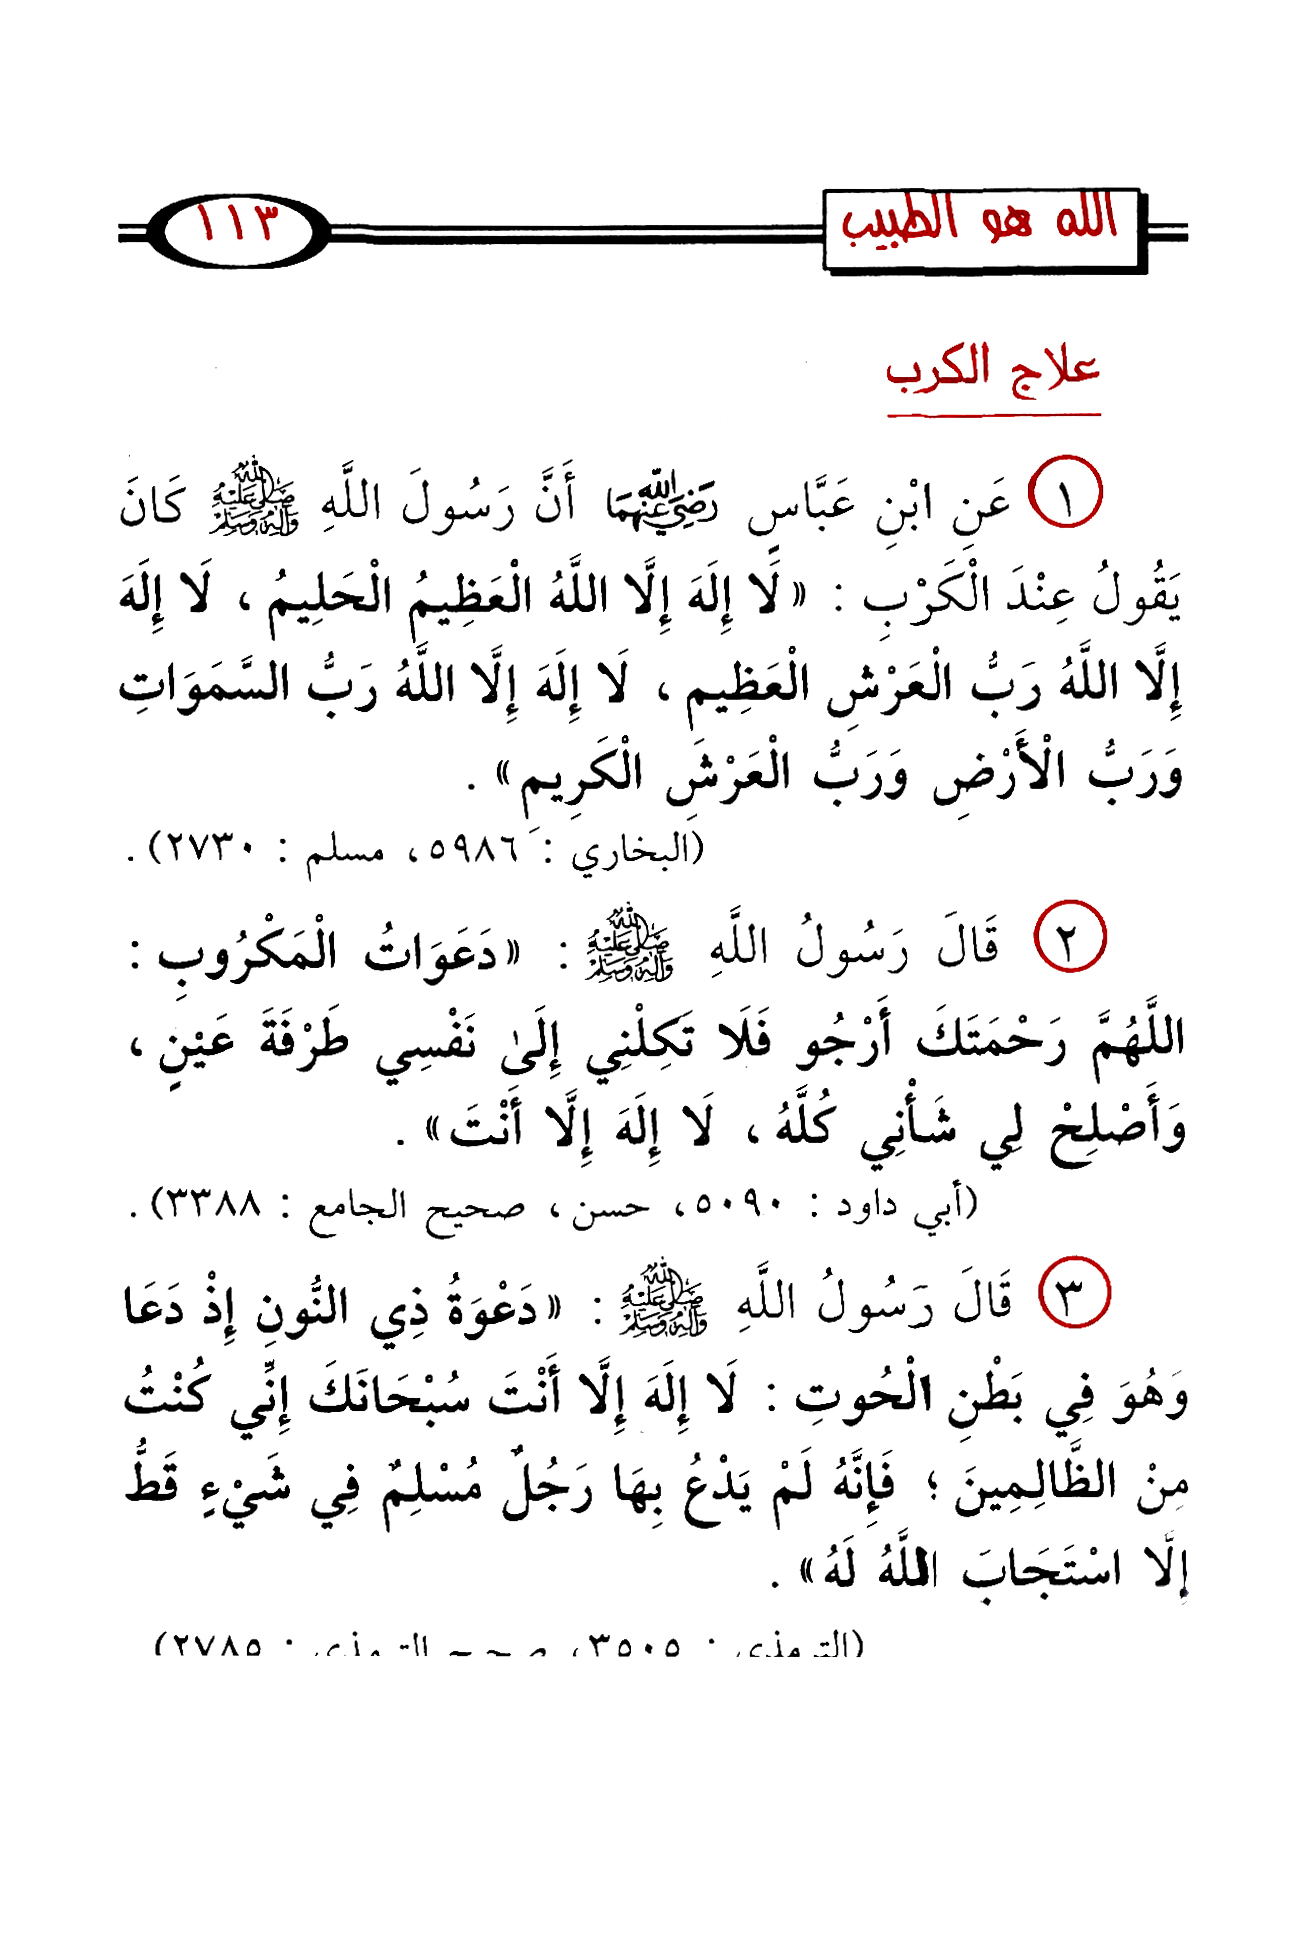 الله هو الطبيب
١١٣
علاج الكرب
١ عَنِ ابْنِ عَبَّاسٍ رَضِيَ اللَّهُ عَنْهُمَا أَنَّ رَسُولَ اللَّهِ ﷺ كَانَ
يَقُولُ عِنْدَ الْكَرْبِ : «لَا إِلَهَ إِلَّا اللَّهُ الْعَظِيمُ الْحَلِيمُ ، لَا إِلَهَ
إِلَّا اللَّهُ رَبُّ الْعَرْشِ الْعَظِيمِ ، لَا إِلَهَ إِلَّا اللَّهُ رَبُّ السَّمَوَاتِ
وَرَبُّ الْأَرْضِ وَرَبُّ الْعَرْشِ الْكَرِيمِ» .
(البخاري : ٥٩٨٦، مسلم : ٢٧٣٠) .
٢ قَالَ رَسُولُ اللَّهِ ﷺ : «دَعَوَاتُ الْمَكْرُوبِ :
اللَّهُمَّ رَحْمَتَكَ أَرْجُو فَلَا تَكِلْنِي إِلَىٰ نَفْسِي طَرْفَةَ عَيْنٍ ،
وَأَصْلِحْ لِي شَأْنِي كُلَّهُ ، لَا إِلَهَ إِلَّا أَنْتَ» .
(أبي داود : ٥٠٩٠، حسن ، صحيح الجامع : ٣٣٨٨) .
٣ قَالَ رَسُولُ اللَّهِ ﷺ : «دَعْوَةُ ذِي النُّونِ إِذْ دَعَا
وَهُوَ فِي بَطْنِ الْحُوتِ : لَا إِلَهَ إِلَّا أَنْتَ سُبْحَانَكَ إِنِّي كُنْتُ
مِنْ الظَّالِمِينَ ؛ فَإِنَّهُ لَمْ يَدْعُ بِهَا رَجُلٌ مُسْلِمٌ فِي شَيْءٍ قَطُّ
إِلَّا اسْتَجَابَ اللَّهُ لَهُ» .
(الترمذي : ٣٥٠٥، صحيح الترمذي : ٢٧٨٥)